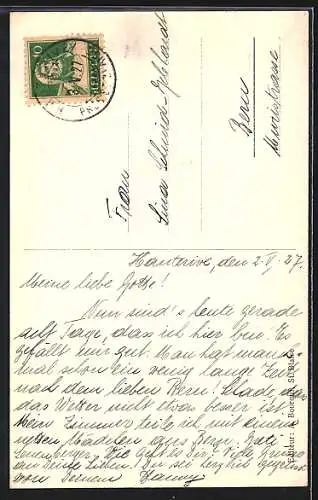 Frau
Lina Schmid-Gebhardt
Bern
Muristrasse
10
HELVETIA
Hauterive, den 2. V. 27.
Meine liebe Gotte!
Nun sind's heute gerade
acht Tage, dass ich hier bin. Es
gefällt mir gut. Man hat manch-
mal schon ein wenig lange Zeit
nach dem lieben Bern! Schade, dass
das Wetter nicht etwas besser ist.
Mein Zimmer teile ich mit einem
netten Mädchen aus
Wie geht es Dir? Viele Grüsse
an Deine Lieben! Du sei herzlich gegrüsst
von Deinem